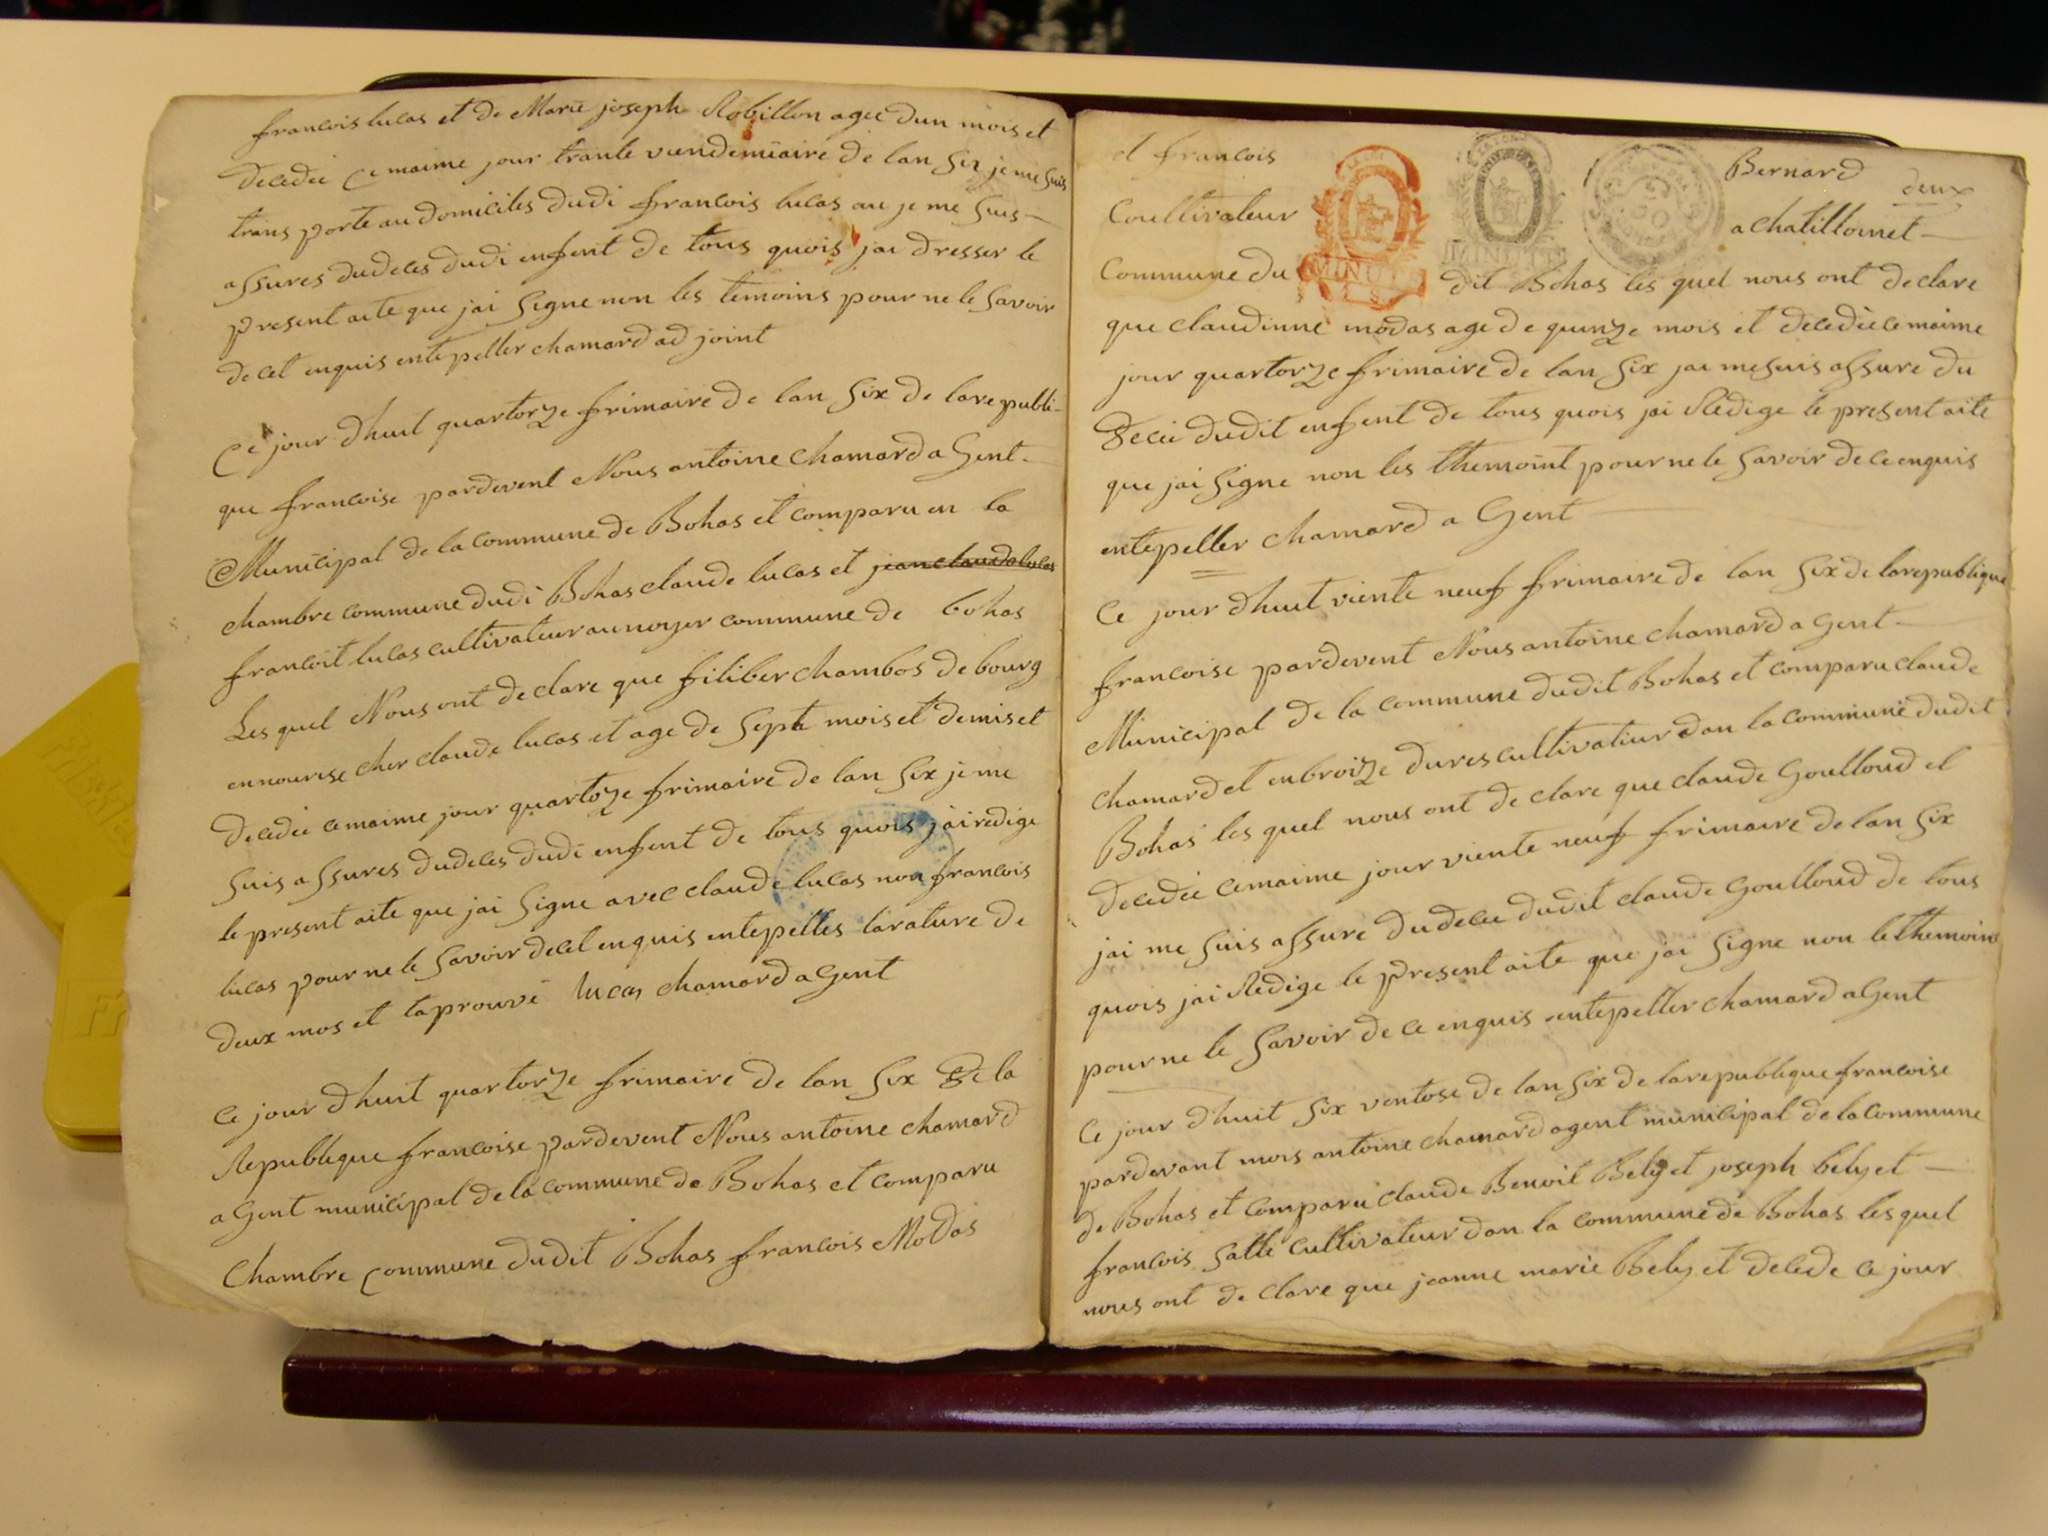 francois lucas et de Marie joseph Robillon agee dun mois et
decedee ce maime jour trante viendemiaire de lan six je me suis
trans porte au domiciles dudi francois lucas au je me suis
assures dudeces dudi enfent de tous quois jai dresser le
present aite que jai signe non les temoins pour ne le savoir
de cet enquis entepeller chamard ad joint
Ce jour dhuit quartorze frimaire de lan six de larepubli-
que francoise pardevent Nous antoine chamard a Gent
Municipal de la commune de Bohas et comparu en la
chambre commune dudi Bohas claude lucas et jean claude lucas
francoit lucas cultivateur au noyer commune de bohas
Les quel Nous ont declare que filiber chambos de bourg
en nourise cher claude lucas et age de sept mois et demis et
decedee ce maime jour quartoze frimaire de lan six je me
suis assures dudeces dudi enfent de tous quois jai redige
le present aite que jai signe avec claude lucas non francois
lucas pour ne le savoir de cet enquis entepelles larature de
deux mos et laprouvé lucas chamard a Gent
Ce jour dhuit quartorze frimaire de lan six de la
Republique francoise pardevent Nous antoine chamard
a Gent municipal de la commune de Bohas et comparu
Chambre commune dudit Bohas francois Modas
deux
et francois Bernard
Coultivateur a chatillonnet
Commune du dit Bohas les quel nous ont declare
MINUTE
MINUTE
que claudinne modas age de quinze mois et decedée ce maime
jour quartorze frimaire de lan six jai me suis assure du
decée dudit enfent de tous quois jai Redige le present aite
que jai signe non les themoint pour ne le savoir de ce enquis
entepeller chamard a Gent
Ce jour dhuit viente neuf frimaire de lan six de larepublique
francoise pardevent Nous antoine chamard a Gent
Municipal de la commune dudit Bohas et comparu claude
chamard et enbroize dures cultivatiur dan la commune dudit
Bohas les quel nous ont de clare que claude Goulloud et
decedée ce maime jour viente neuf frimaire de lan six
jai me suis assure du decee dudit claude Goulloud de tous
quois jai Redige le present aite que jai signe non lethemoins
pour ne le savoir de ce enquis entepeller chamard a Gent
Ce jour dhuit six ventose de lan six de larepublique francoise
pardevant mois antoine chamard agent municipal de la commune
de Bohas et comparu claude Benoit Belyet joseph belyet
francois salle cultivateur dan la commune de Bohas les quel
nous ont de clare que jeanne marie Bely et decede ce jour